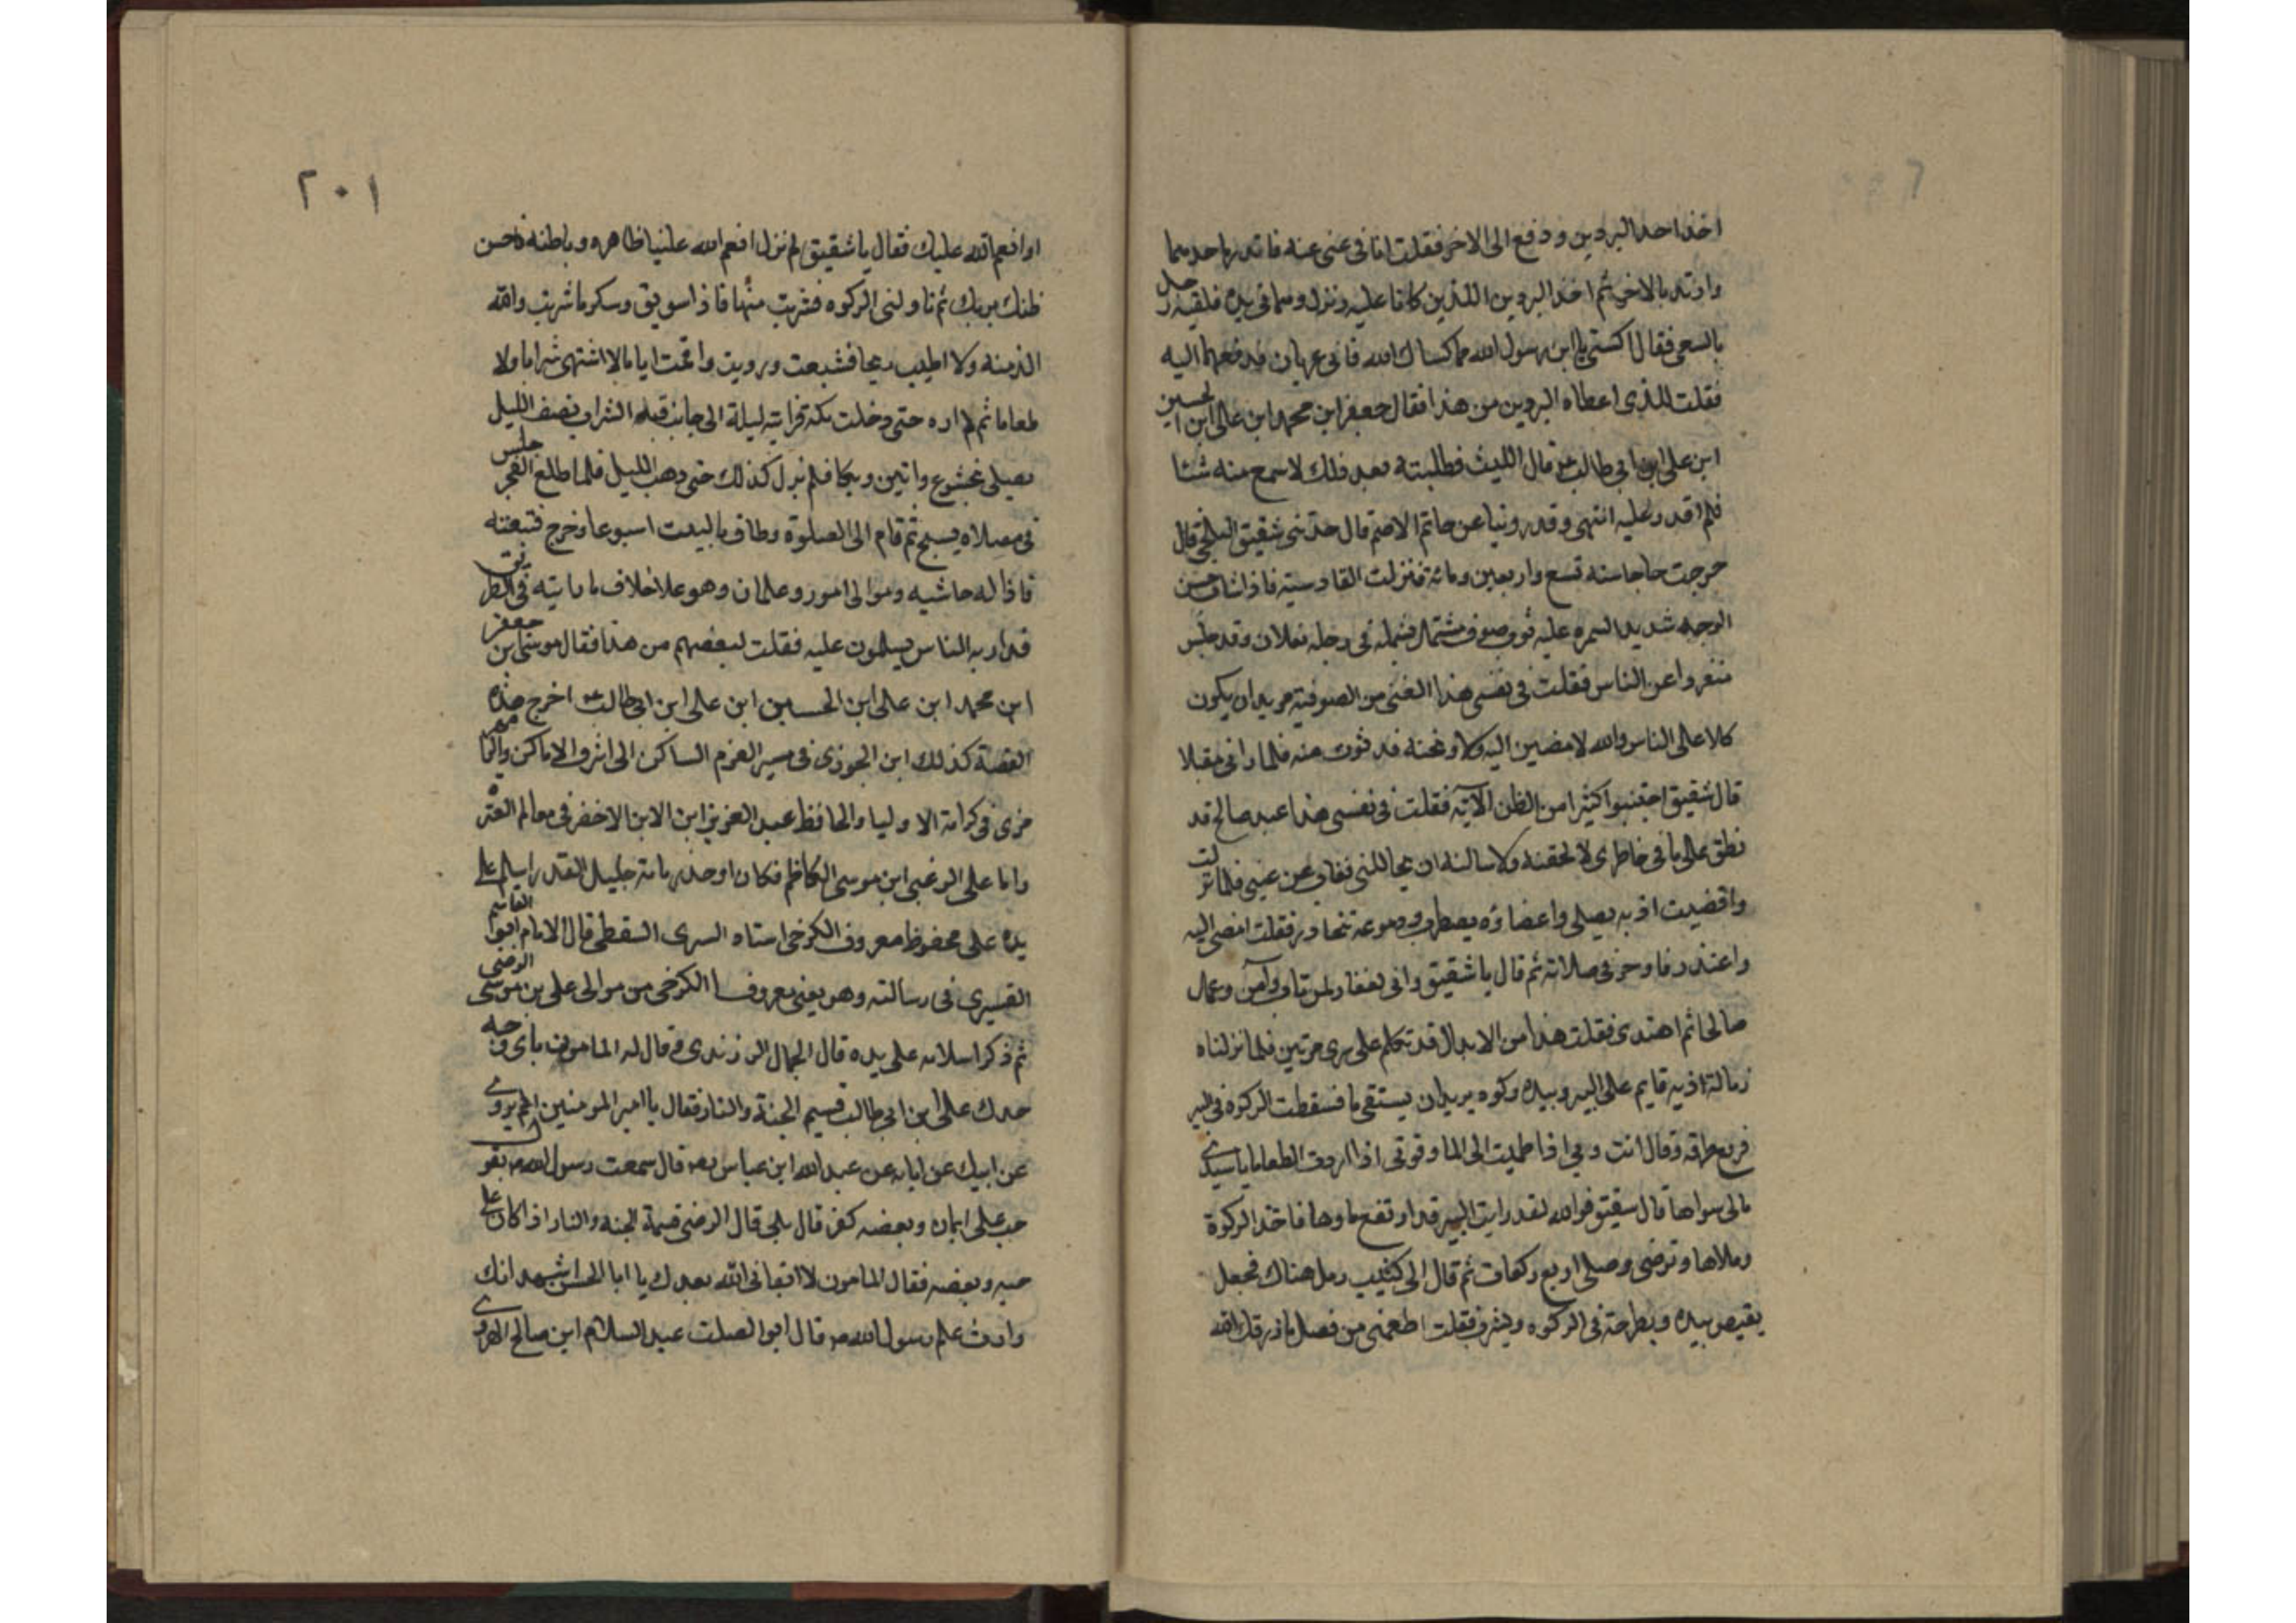 اخذ احد البردين ودفع الى الاخر فقلت انا فى غنى عنه فاتزر باحدهما
وارتد بالاخر ثم اخذ البردين اللذين كانا عليه ونزل وهما فى يده فلقيه رجل
بالسعى فقال اكسنى يا ابن رسول الله مما كساك الله فانى عريان فدفعهما اليه
فقلت للذى اعطاه البردين من هذا فقال جعفر ابن محمد ابن على ابن الحسين
ابن على ابن ابى طالب قال الليث فطلبته بعد ذلك لاسمع منه شئا
فلم اقدر عليه انتهى وقد روينا عن حاتم الاصم قال حدثنى شقيق البلخى قال
خرجت حاجا سنه تسع واربعين ومائة فنزلت القادسية فاذا شاب حسن
الوجه شديد السمره عليه ثوب صوف مشتمل بشمله فى رجله نعلان وقد جلس
منفردا عن الناس فقلت فى نفسى هذا الفتى من الصوفية يريد ان يكون
كلا على الناس والله لامضين اليه ولاوبخنه فدنوت منه فلما رانى مقبلا
قال شقيق اجتنبوا كثيرا من الظن الآية فقلت فى نفسى هذا عبد صالح قد
نطق على ما فى خاطرى لالحقنه ولاسالنه ان يحاللنى فغاب عن عينى فلما نزلت
واقضيت اذ به يصلى واعضاؤه يضطرب ودموعه تتحادر فقلت امضى اليه
واعتذر فاوجز فى صلاته ثم قال يا شقيق وانى لغفار لمن تاب وآمن وعمل
صالحا ثم اهتدى فقلت هذا من الابدال قد تكلم على سرى مرتين فلما نزلناه
زمالة اذ به قايم على البير وبيده ركوه يريد ان يستقى ما فسقطت الركوه فى البير
فرفع طرفه وقال انت ربى اذا ظميت الى الما وقوتى اذا اردت الطعاما يا سيدى
مالى سواها قال شقيق فوالله لقد رايت البير قد ارتفع ماوها فاخذ الركوة
وملاها وتوضى وصلى اربع ركعات ثم قال الى كثيب رمل هناك فجعل
يقبض بيده ويطرحه فى الركوه ويشرب فقلت اطعمنى من فضل ما رزقك الله
٢٠١
او انعم الله عليك فقال يا شقيق لم نزل انعم الله علينا ظاهره وباطنه فاحسن
ظنك بربك ثم ناولنى الركوه فشربت منها فاذا سويق وسكر ما شربت والله
الذ منه ولا اطيب ريحا فشبعت ورويت واقمت اياما لا اشتهى شرابا ولا
طعاما ثم لم اره حتى دخلت مكة فرايته ليلة الى جانب قبه الشراب نصف الليل
يصلى بخشوع وانين وبكا فلم يزل كذلك حتى ذهب الليل فلما طلع الفجر جلس
فى مصلاه يسبح ثم قام الى الصلوة وطاف بالبيت اسبوعا وخرج فتبعته
فاذا له حاشيه وموالى امور وغلمان وهو على خلاف ما رايته فى الطريق
قد دار به الناس يسلمون عليه فقلت لبعضهم من هذا فقال موسى ابن جعفر
ابن محمد ابن على ابن الحسين ابن على ابن ابى طالب اخرج هذه
القصة كذلك ابن الجوزى فى مسير العزم الساكن الى اشرف الاماكن
فى كرامة الاوليا والحافظ عبد العزيز ابن الاخضر فى معالم العترة
واما على الرضى ابن موسى الكاظم فكان اوحد زمانه جليل القدر اسلم على
يده على محفوظ معروف الكرخى استاد السرى السقطى قال الامام ابوا القاسم
القشيرى فى رسالته وهو يعنى معروفا الكرخى من موالى على بن موسى الرضى
ثم ذكر اسلامه على يده قال الجمال الزرندى قال له المامون باى وجه
جدك على ابن ابى طالب قسيم الجنة والنار فقال يا امير المومنين الم يروى
عن ابيك عن ابايه عن عبد الله ابن عباس قال سمعت رسول الله يقول
حب على ايمان وبغضه كفر قال بلى قال الرضى قسمة الجنه والنار اذا كان على
حبه وبغضه فقال المامون لا ابقانى الله بعدك يا ابا الحسن اشهد انك
وارث علم رسول الله قال ابو الصلت عبد السلام ابن صالح الهروى